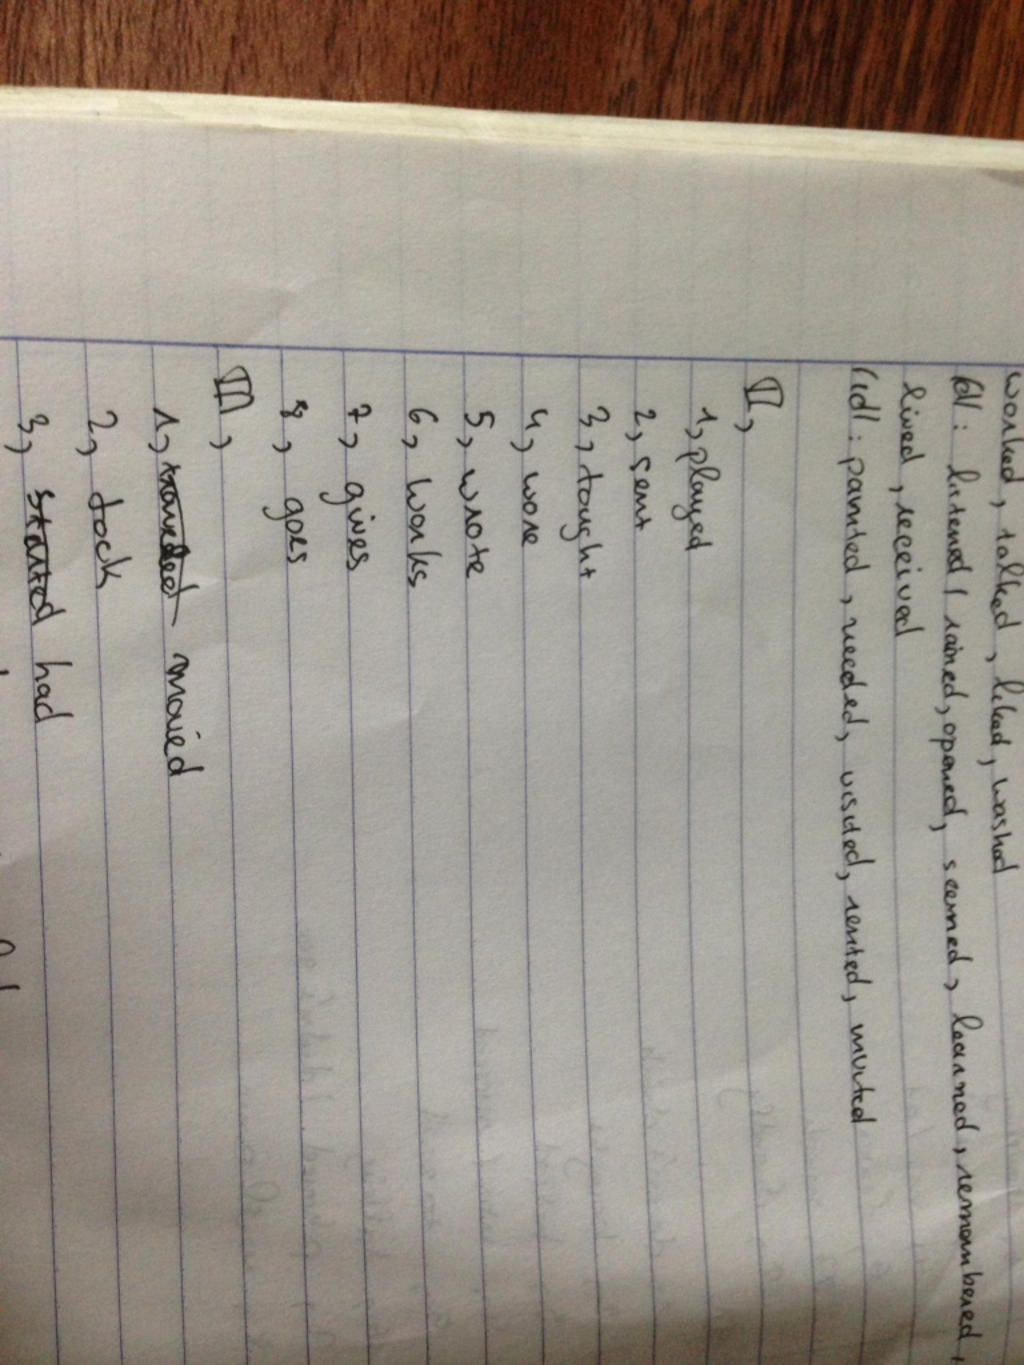 worked, talked, liked, washed
/d/: listened, rained, opened, seemed, learned, remembered,
lived, received
/id/: painted, needed, visited, rented, invited
II,
1, played
2, sent
3, tought
4, wore
5, wrote
6, works
7, gives
8, goes
III,
1, moved
2, took
3, started had